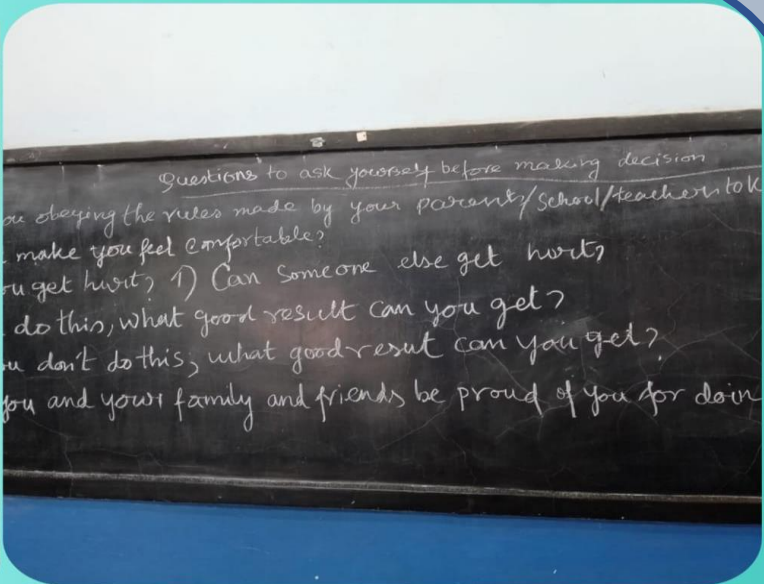 Questions to ask yourself before making decision
ou obeying the rules made by your parents/school/teachers to k
make you feel comfortable?
u get hurt? 1) Can someone else get hurt?
do this, what good result can you get?
u don't do this, what good resut can you get?
you and your family and friends be proud of you for doin